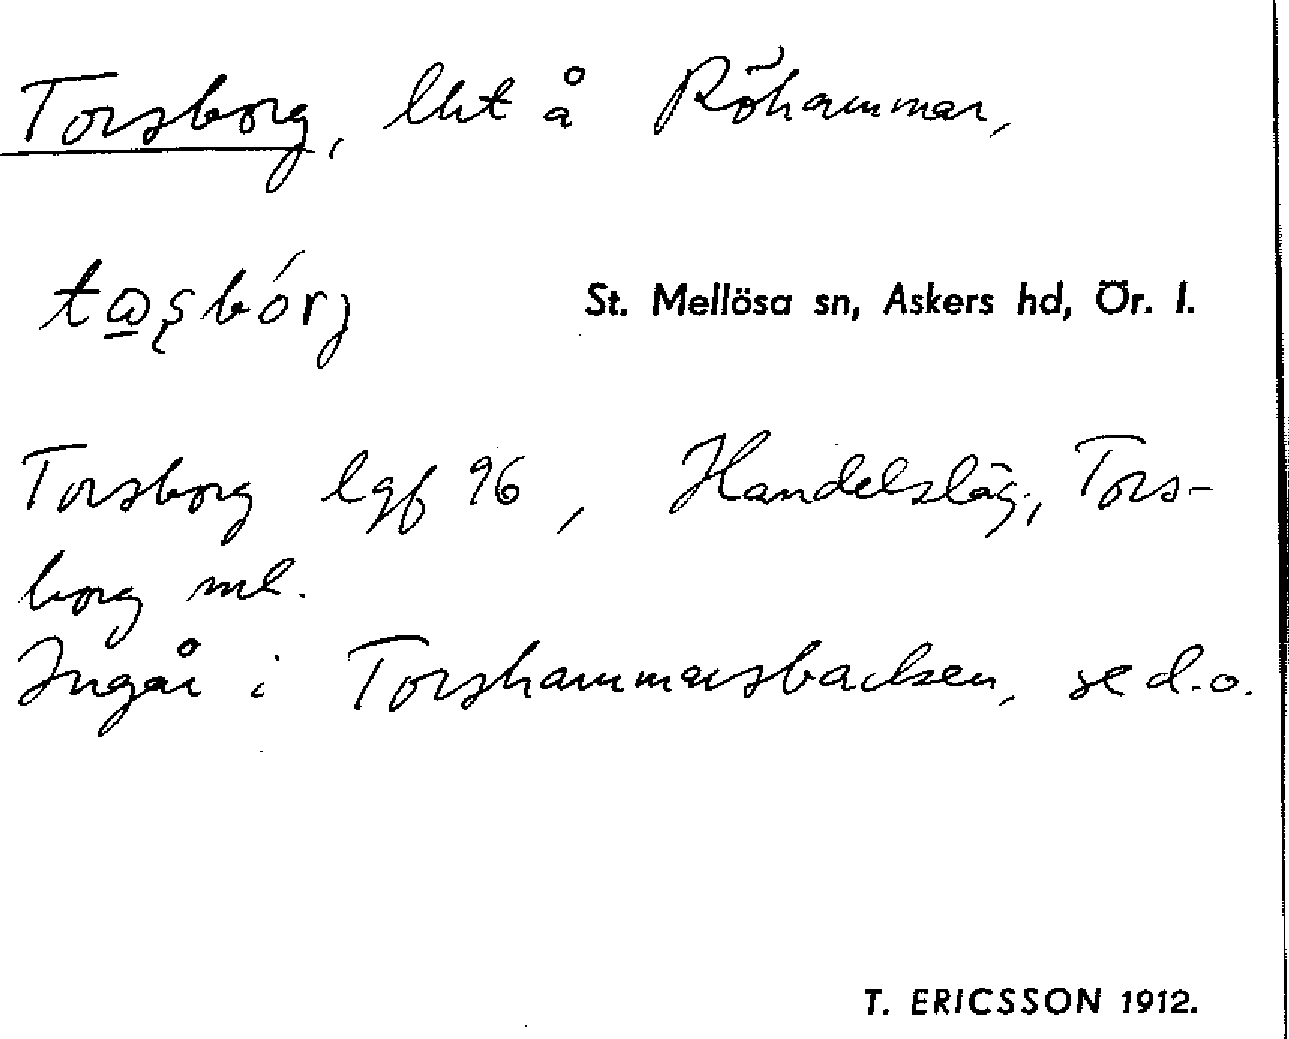 Torsborg, lht å Röhammar,
tω̲ʂbórj St. Mellösa sn, Askers hd, Ör. l.
Torsborg lgf 96, Handelsläg., Tors-
borg ml.
Ingår i Torshammarsbacken, se d.o.
T. ERICSSON 1912.